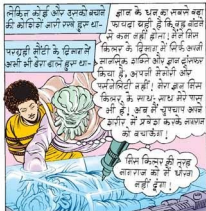 लेकिन कोई और उसको बचाने
की कोशिशें जारी रखे हुए था-
परछाई सौडांगी के दिमाग में
अभी भी डेरा डाले हुए था-
ज्ञान के धन का सबसे बड़ा
फायदा यही है कि वह बांटने
से कम नहीं होता। मैंने मिस
किलर के दिमाग में सिर्फ अपनी
मानसिक शक्ति और ज्ञान ट्रांसफर
किया है, अपनी मेमोरी और
पर्सनैलिटी नहीं! मेरा ज्ञान मिस
किलर के साथ, साथ मेरे पास
भी है! अब मैं चुपचाप अपने
शरीर में प्रवेश करके नागराज
को बचाऊंगा!
मिस किलर की तरह
नागराज को मैं धोखा
नहीं दूंगा!